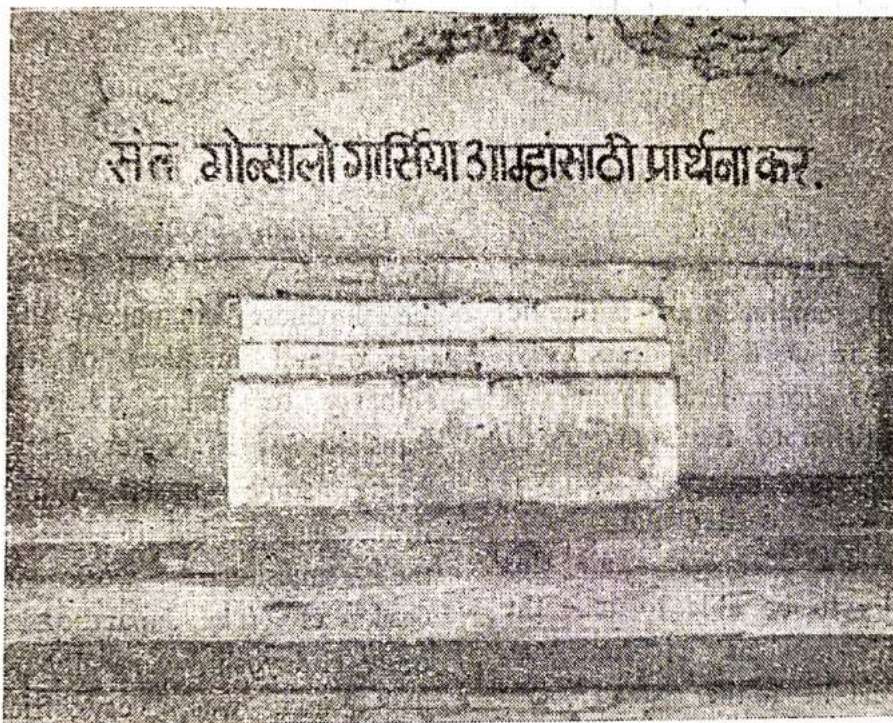 संत गोन्सालो गार्सिया आम्हांसाठी प्रार्थना कर.